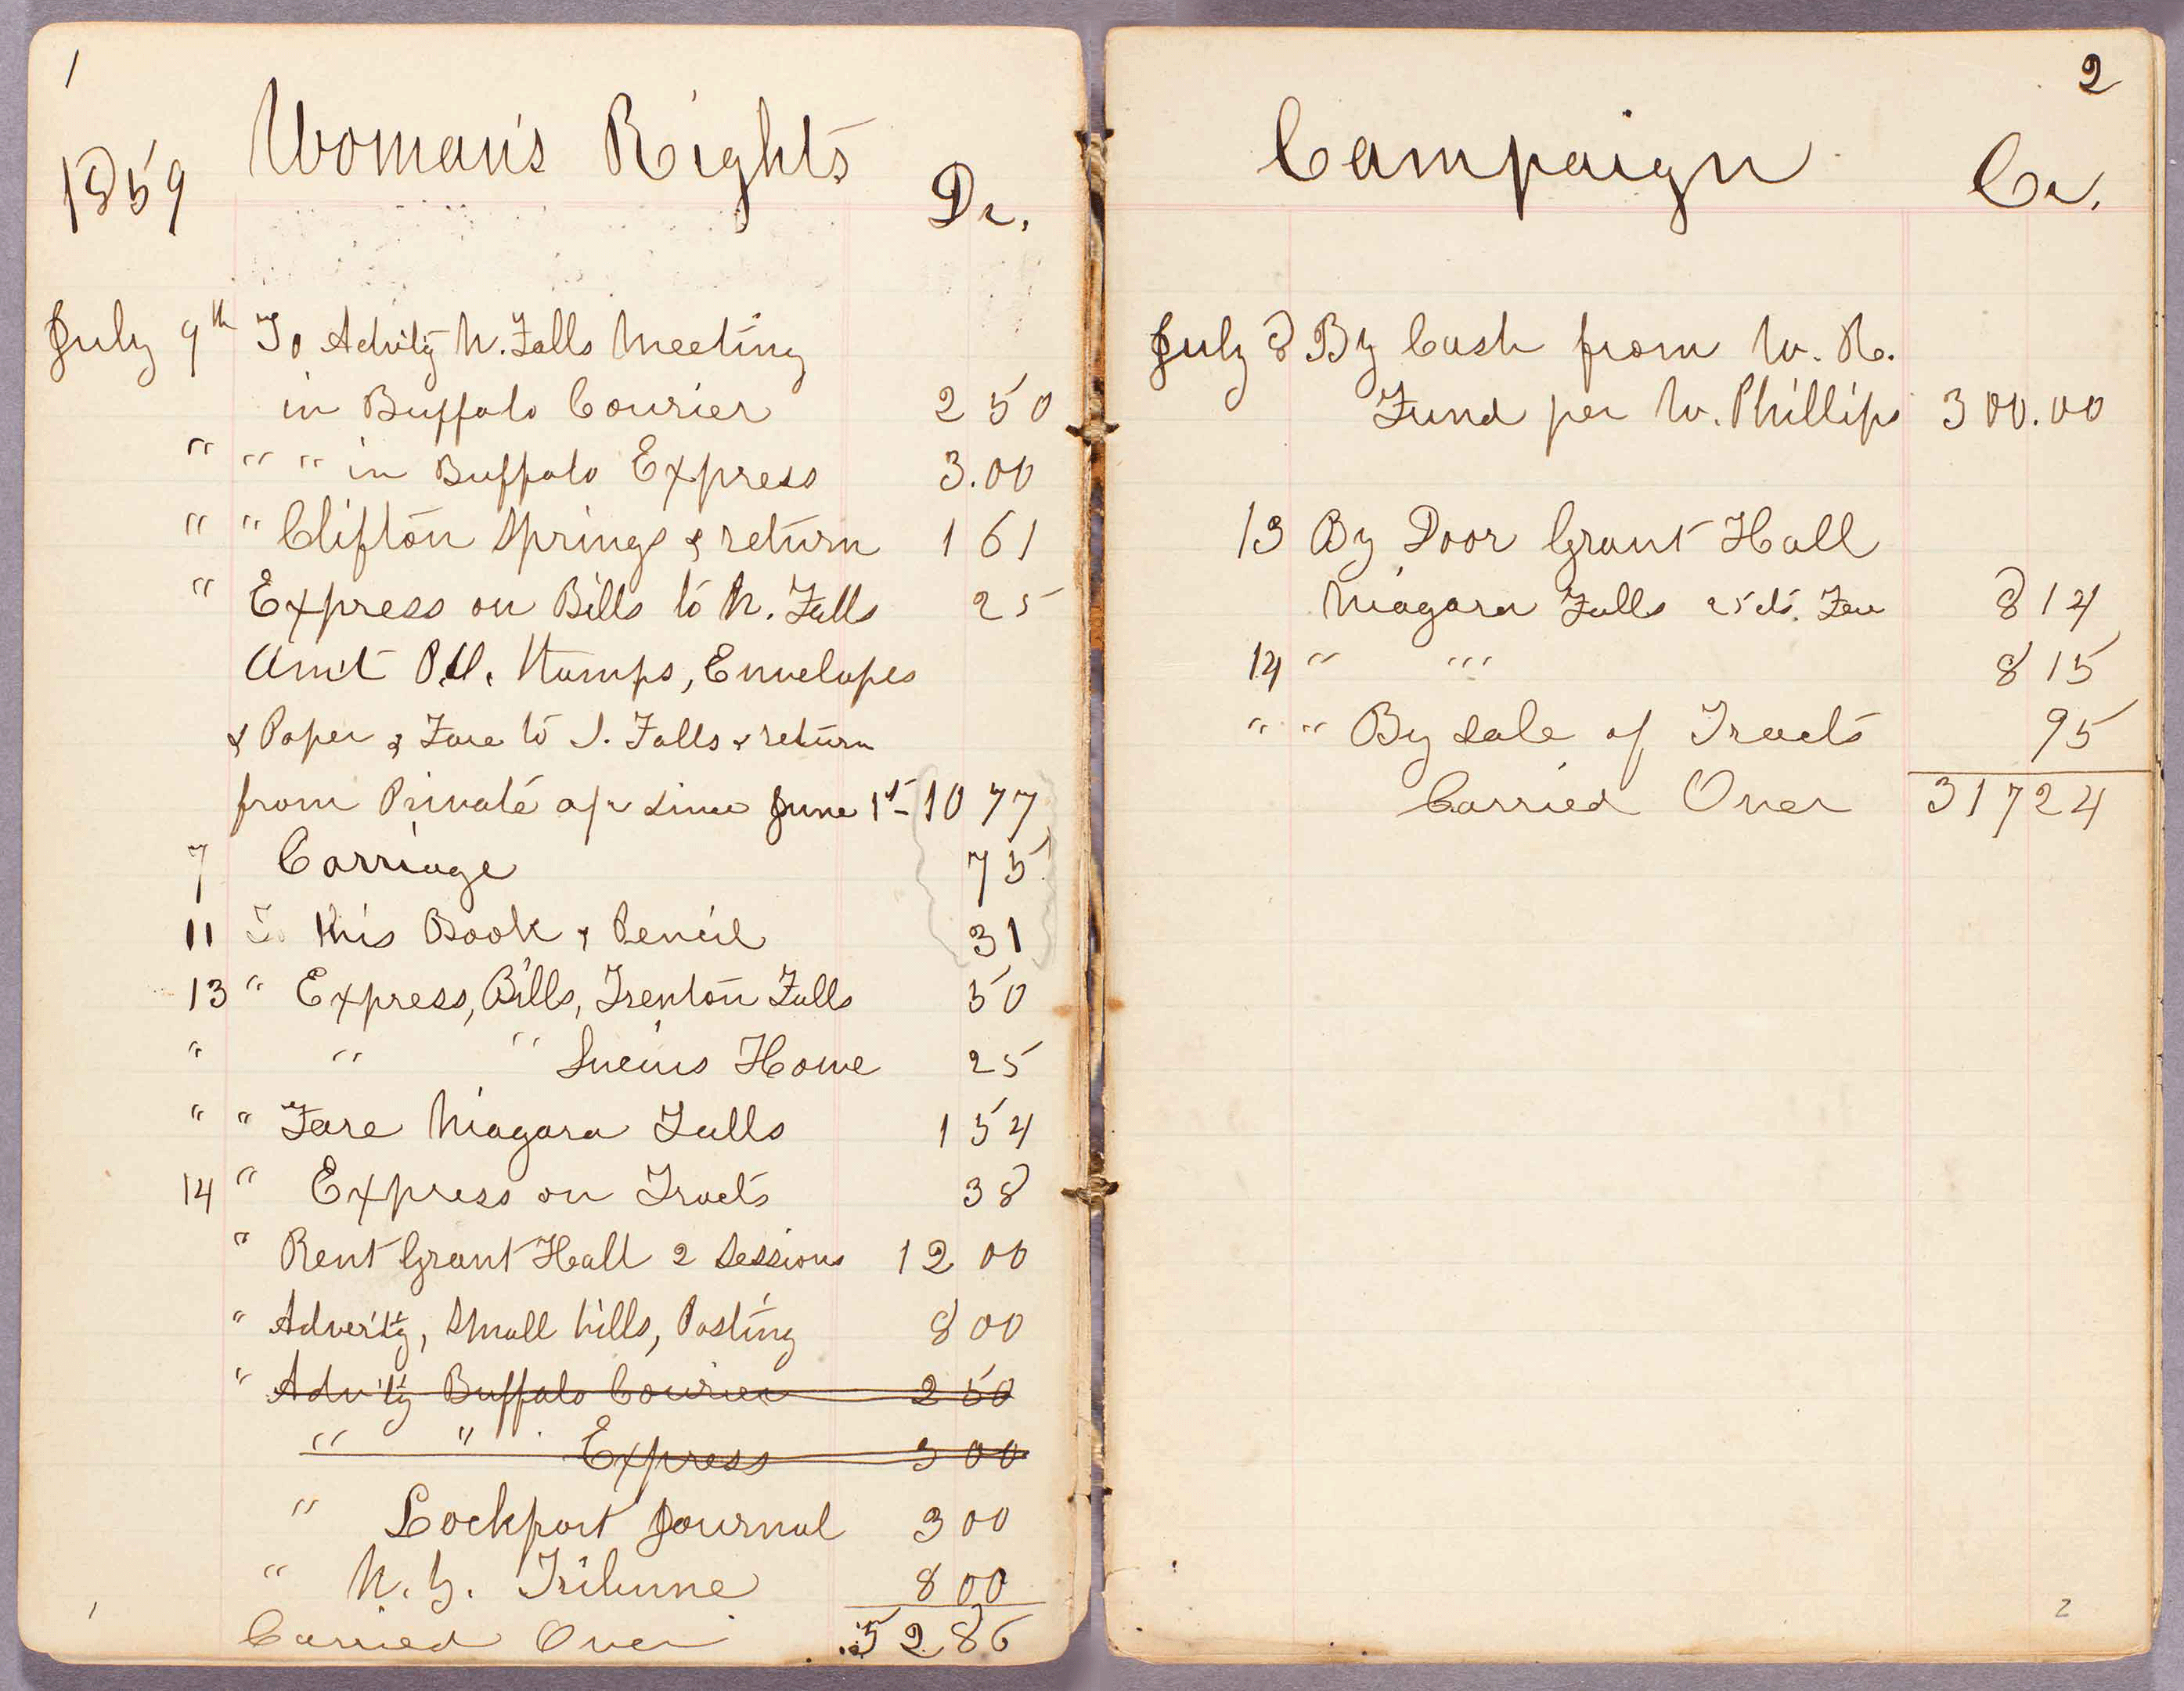 1
1859 Woman's Rights Dr.
July 9th To Advtg N. Falls Meeting
in Buffalo Courier 2 50
" " " in Buffalo Express 3.00
" " Clifton Springs & return 1 61
" Express on Bills to N. Falls 25
Am't P.O. Stamps, Envelopes
& Paper & Fare to T. Falls & return
from Private a/c since June 1st - 10 77
7 Carriage 75
11 To this Book & Pencil 31
13 " Express, Bills, Trenton Falls 50
" " " Lucius Howe 25
" " Fare Niagara Falls 1 54
14 " Express on Tracts 38
" Rent Grant Hall 2 Sessions 12 00
" Advertg, Small bills, Posting 8 00
" Adv'tg Buffalo Courier 2 50
" " Express 3 00
" Lockport Journal 3 00
" N. Y. Tribune 8 00
Carried Over 52 86
1
2
Campaign Cr.
July 8 By Cash from W. R.
Fund per W. Phillips 300.00
13 By Door Grant Hall
Niagara Falls 25 cts. Fee 8 14
14 " " " 8 15
" " By Sale of Tracts 95
Carried Over 317 24
2